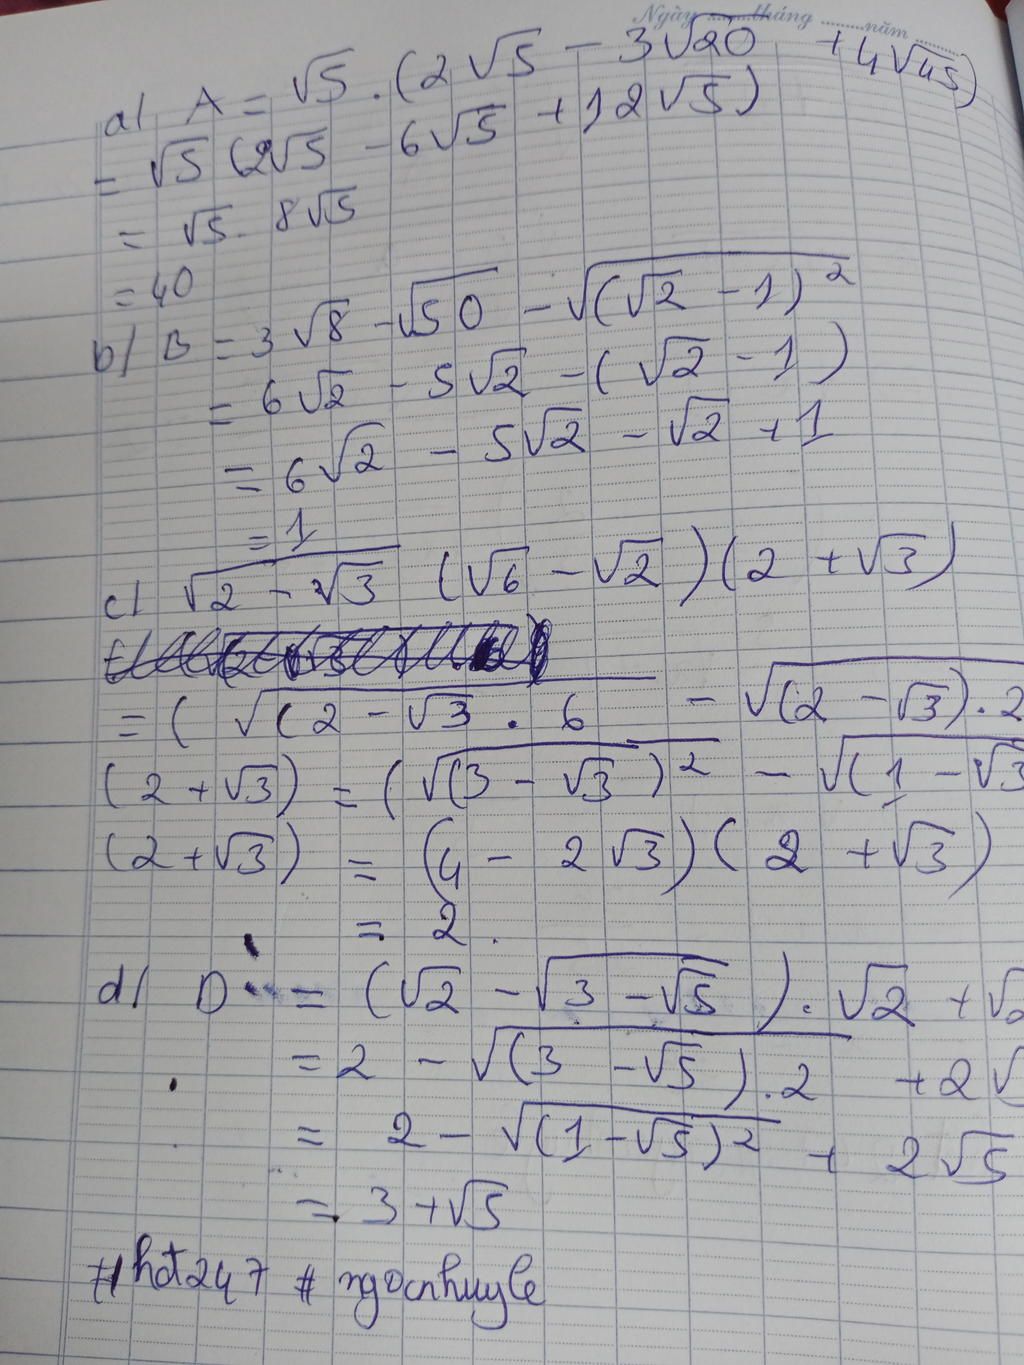 Ngày ........tháng ........năm ........
a/ A = √5 . (2√5 - 3√20 + 4√45)
= √5 (2√5 - 6√5 + 12√5)
= √5 . 8√5
= 40
b/ B = 3√8 - √50 - √(√2 - 1)²
= 6√2 - 5√2 - (√2 - 1)
= 6√2 - 5√2 - √2 + 1
= 1
c/ √2 - √3 (√6 - √2)(2 + √3)
= ( √(2 - √3 . 6 - √(2 - √3).2
(2 + √3) = (√(3 - √3)² - √(1 - √3
(2 + √3) = (4 - 2√3)( 2 + √3)
= 2.
d/ D = (√2 - √3 - √5 ) . √2 + √2
= 2 - √(3 - √5 ) .2 + 2√
= 2 - √(1 - √5)² + 2√5
= 3 + √5
#hot247 #ngocnhuyle